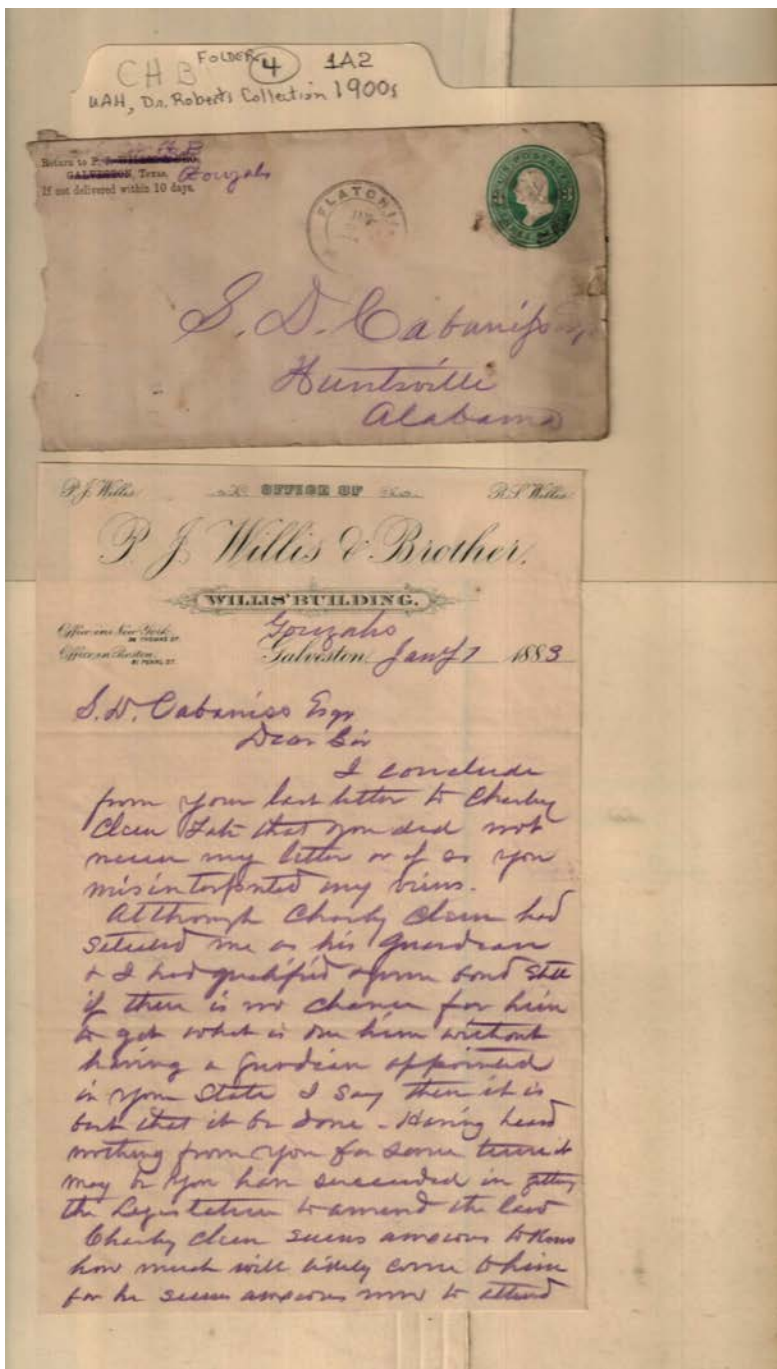 CHB FOLDER 4 1A2
UAH, Dr. Roberts Collection 1900s
Return to P. J. WILLIS & BRO.
GALVESTON, Texas, Gonzales
If not delivered within 10 days.
FLATONIA
JAN
U.S. POSTAGE
S. D. Cabaniss
Huntsville
Alabama
P. J. Willis OFFICE OF R. S. Willis
P. J. Willis & Brother.
WILLIS' BUILDING.
Office in New York
Gonzales
Office in Boston
Galveston Jany 7 1883
S. D. Cabaniss Esqr
Dear Sir
I conclude
from your last letter to Charley
that you did not
my letter or if so you
my views.
Although Charley had
me as his guardian
& I had qualified & given bond still
if there is no chance for him
to get what is due him without
having a guardian appointed
in your State I say then it is
best that it be done - Having heard
nothing from you for some time it
may be you have succeeded in getting
the Legislature to amend the law
Charley seems anxious to know
how much will likely come to him
for he seems anxious now to attend